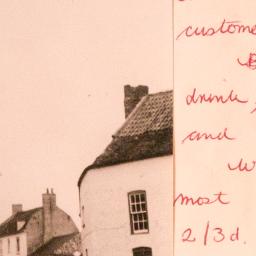 custome
drink,
and
w
most
2/3d.